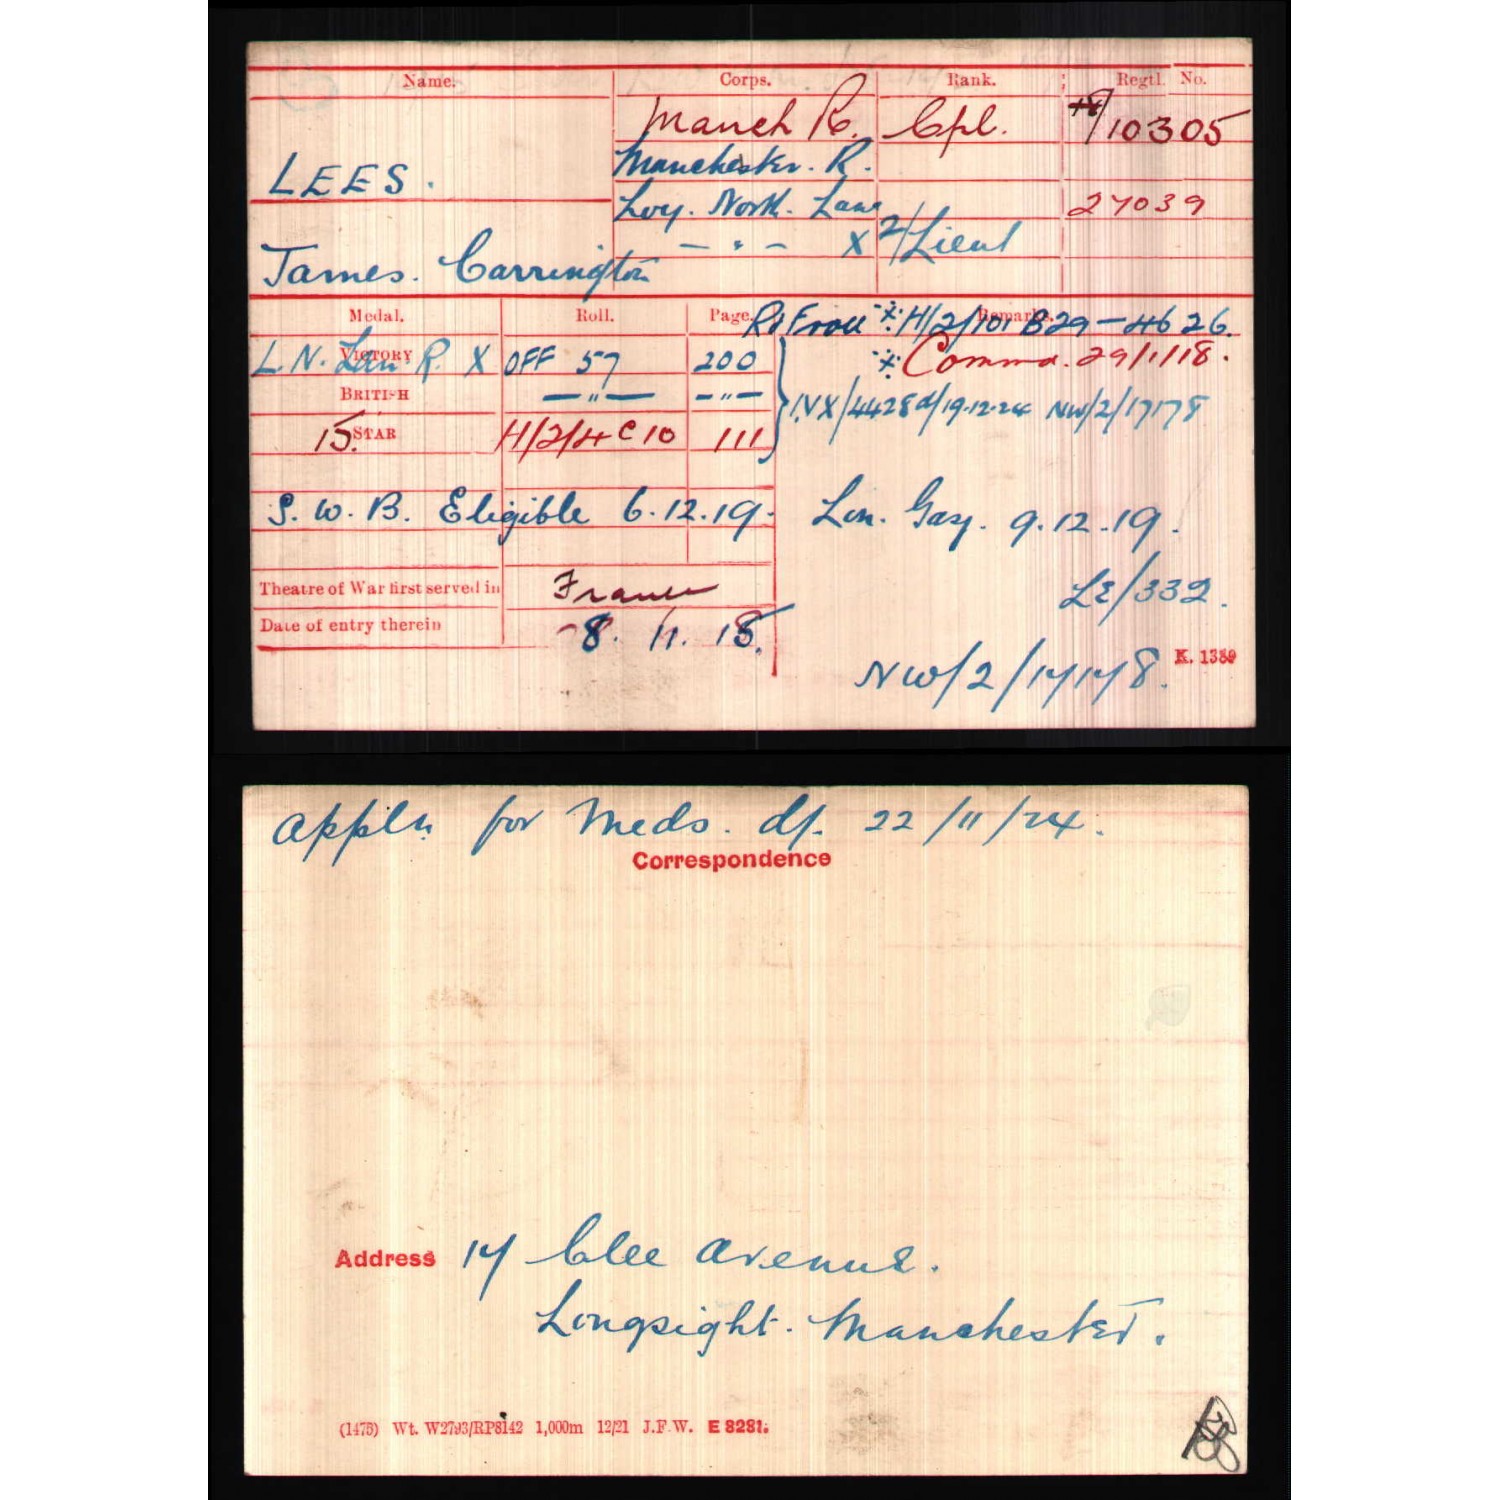 Name. Corps. Rank. Regtl. No.
Manch R. Cpl. /10305
LEES. Manchester. R.
Loy. North. Lanc 27039
— " — X 2/Lieut
James. Carrington
Medal. Roll. Page. Remarks.
H/2/101 B29-4626.
VICTORY L.N. Lan. R. X OFF 57 200
※ Commd. 29/1/18.
BRITISH — " — — " —
IVX/4428d/19.12.24 NW/2/17178
15. STAR H/2/4 C10 111
S. W. B. Eligible 6.12.19. Lon. Gaz. 9.12.19.
Theatre of War first served in France
LE/332.
Date of entry therein 8. 11. 15.
NW/2/17178. K. 1389
Appln for Meds. d/. 22/11/24.
Correspondence
Address 17 Clee Avenue.
Longsight. Manchester.
(1475) Wt. W2793/RP8142 1,000m 12/21 J.F.W. E 8281.